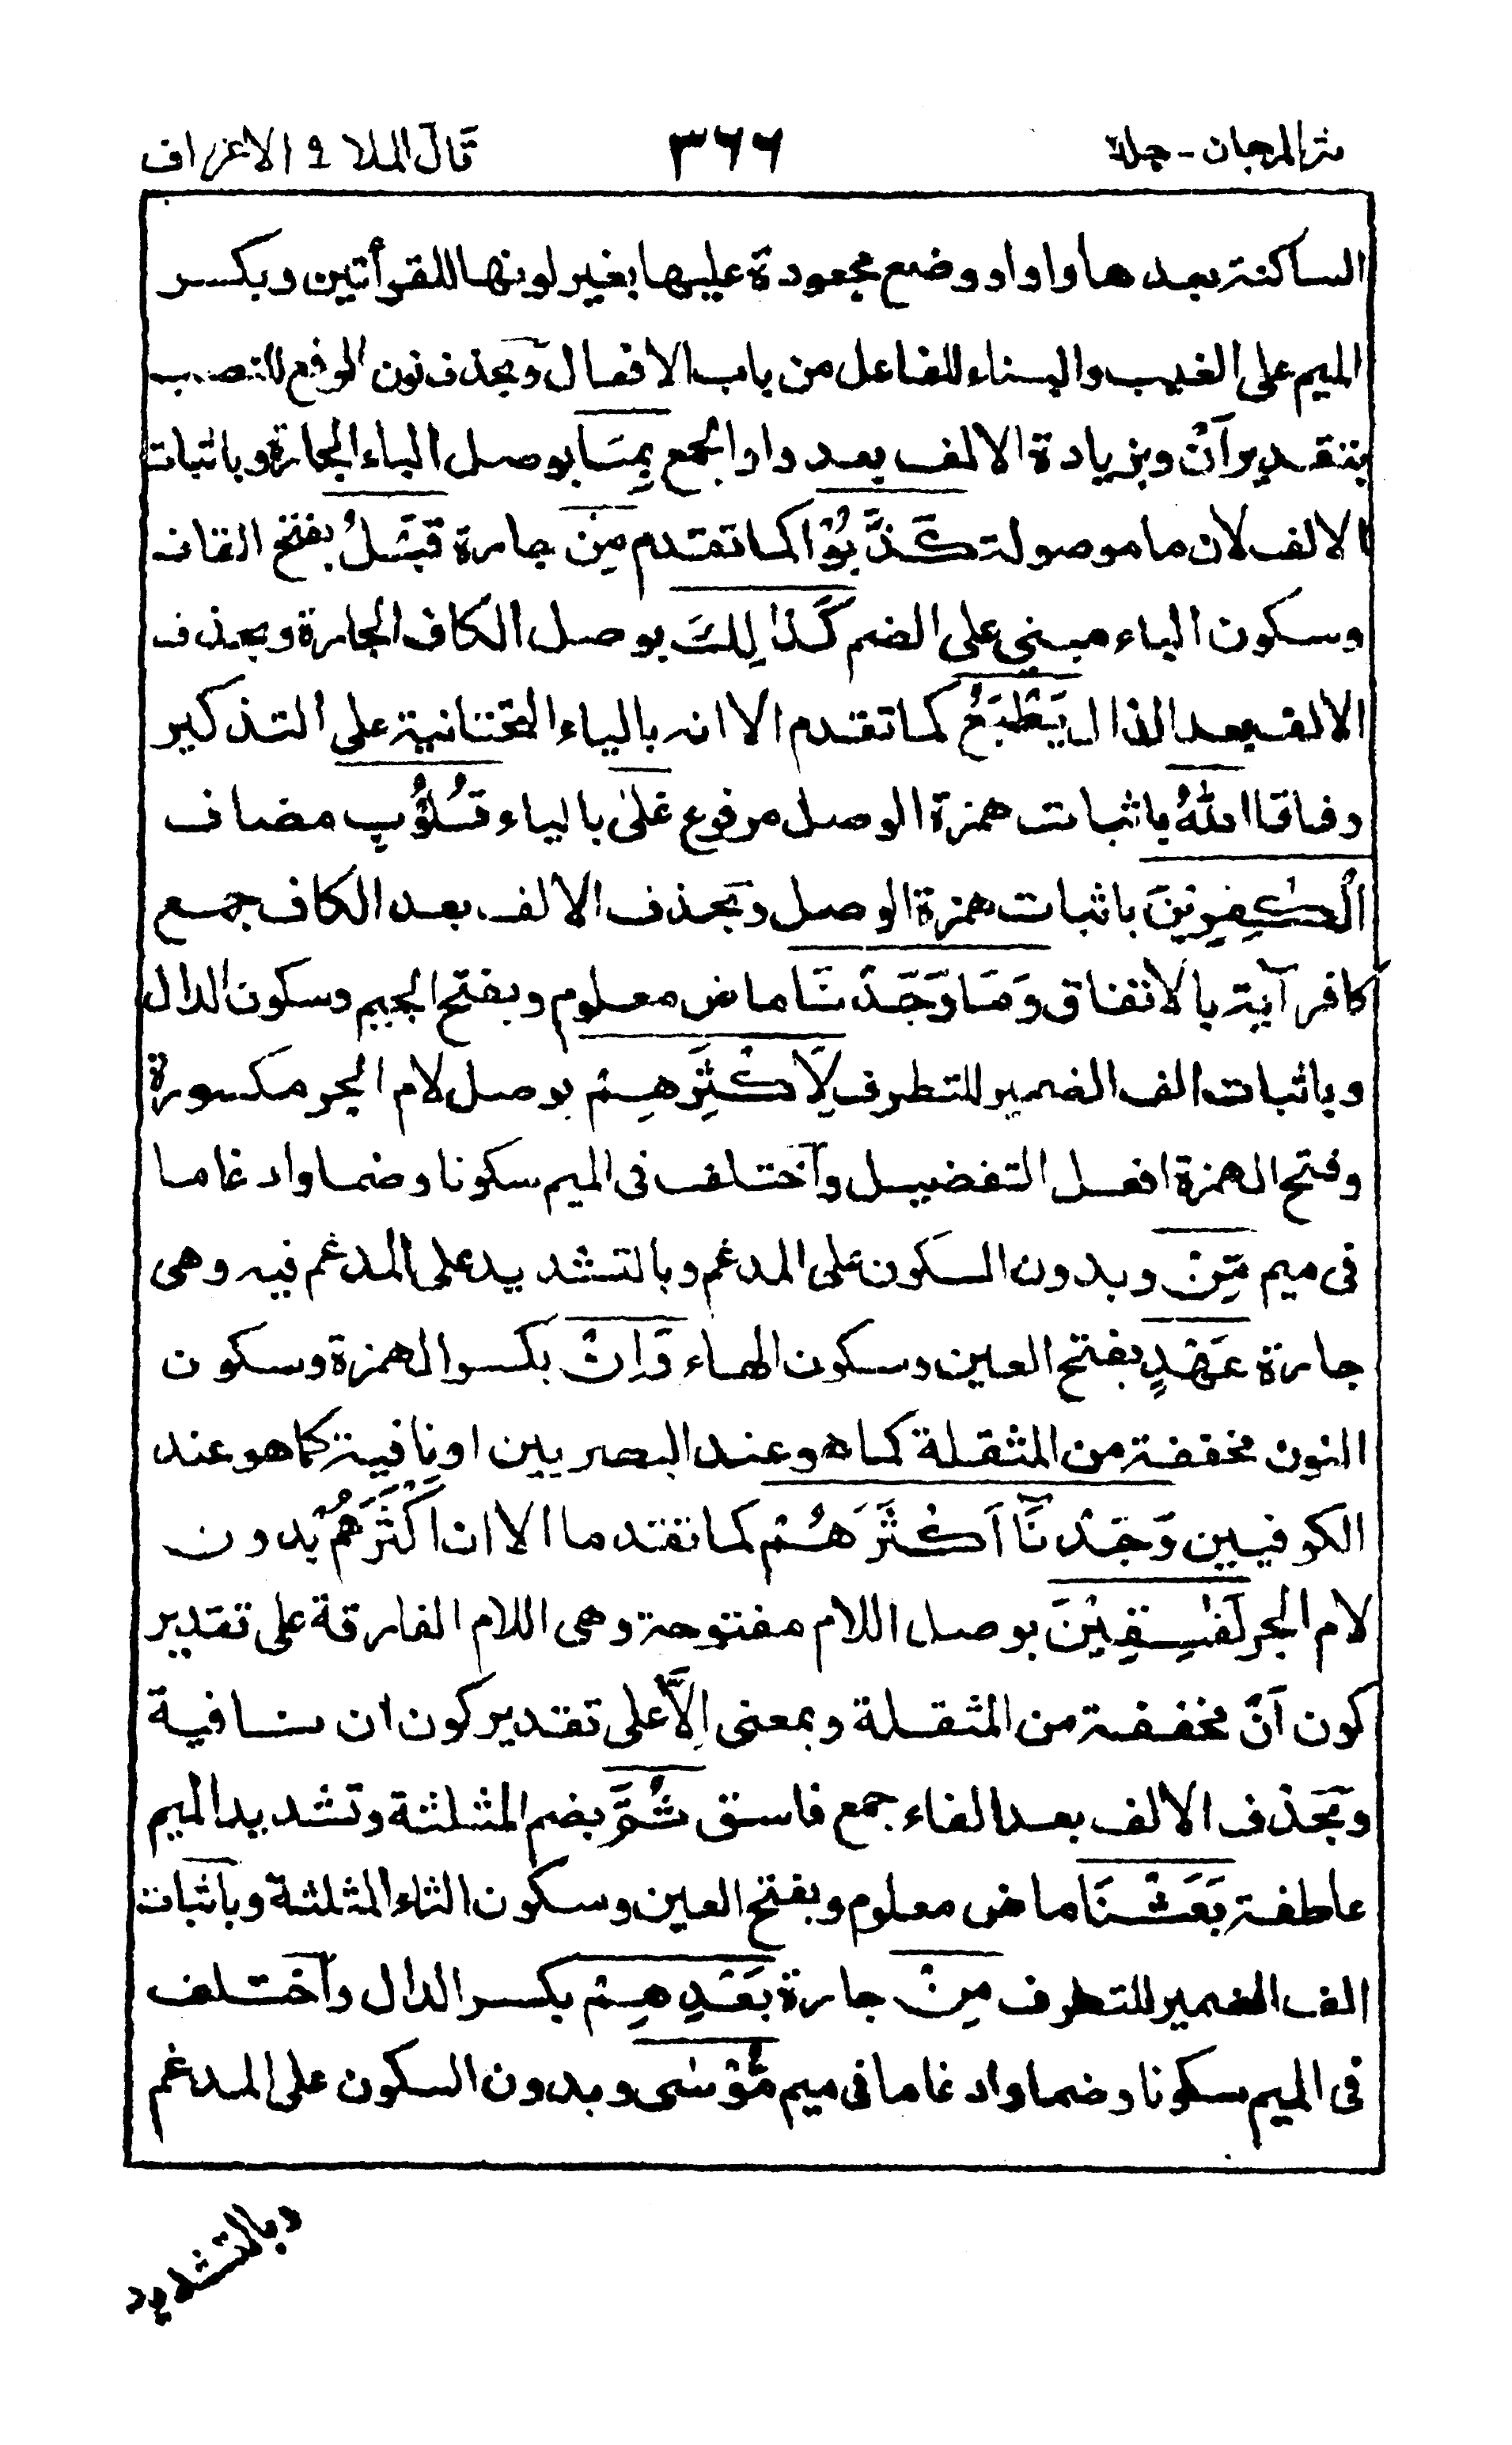 نثر المرجان - جلد ٣٦٦ قال الملا ٩ الاعراف
الساكنة بعدها واوا ووضع مجعودة عليها بغير لونها للقرأتين وبكسر
الميم على الغيب والبناء للفاعل من باب الافعال وبحذف نون الرفع للنصب
بتقدير آن وبزيادة الالف بعد واو الجمع بِمَا بوصل الباء الجارة وباثبات
الالف لان ما موصولة كَذَّبُوْا كما تقدم مِنْ جارة قَبْلُ بفتح القاف
وسكون الباء مبني على الضم كَذٰلِكَ بوصل الكاف الجارة وبحذف
الالف بعد الذال يَطْبَعُ كما تقدم الا انه بالياء التحتانية على التذكير
وفاقا اللّٰهُ باثبات همزة الوصل مرفوع عَلٰى بالياء قُلُوْبِ مضاف
الْكٰفِرِيْنَ باثبات همزة الوصل وبحذف الالف بعد الكاف جمع
كافر آية بالاتفاق وَمَا وَجَدْنَا ماض معلوم وبفتح الجيم وسكون الدال
وباثبات الف الضمير للتطرف لِاَكْثَرِهِمْ بوصل لام الجر مكسورة
وفتح الهمزة افعل التفضيل وآختلف فى الميم سكونا وضما وادغاما
فى ميم مِّنْ وبدون السكون على المدغم وبالتشديد على المدغم فيه وهى
جارة عَهْدٍ بفتح العين وسكون الهاء وَاِنْ بكسر الهمزة وسكون
النون مخففة من المثقلة كما هو عند البصريين او نافية كما هو عند
الكوفيين وَجَدْنَآ اَكْثَرَهُمْ كما تقدما الا ان اَكْثَرَهُمْ بدون
لام الجر لَفٰسِقِيْنَ بوصل اللام مفتوحة وهى اللام الفارقة على تقدير
كون آنّ مخففة من المثقلة وبمعنى اِلَّا على تقدير كون ان نافية
وبحذف الالف بعد الفاء جمع فاسق ثُمَّ بضم المثلثة وتشديد الميم
عاطفة بَعَثْنَا ماض معلوم وبفتح العين وسكون الثاء المثلثة وباثبات
الف الضمير للتطرف مِنْ جارة بَعْدِهِمْ بكسر الدال وآختلف
فى الميم سكونا وضما وادغاما فى ميم مُّوْسٰى وبدون السكون على المدغم
وبالتشديد